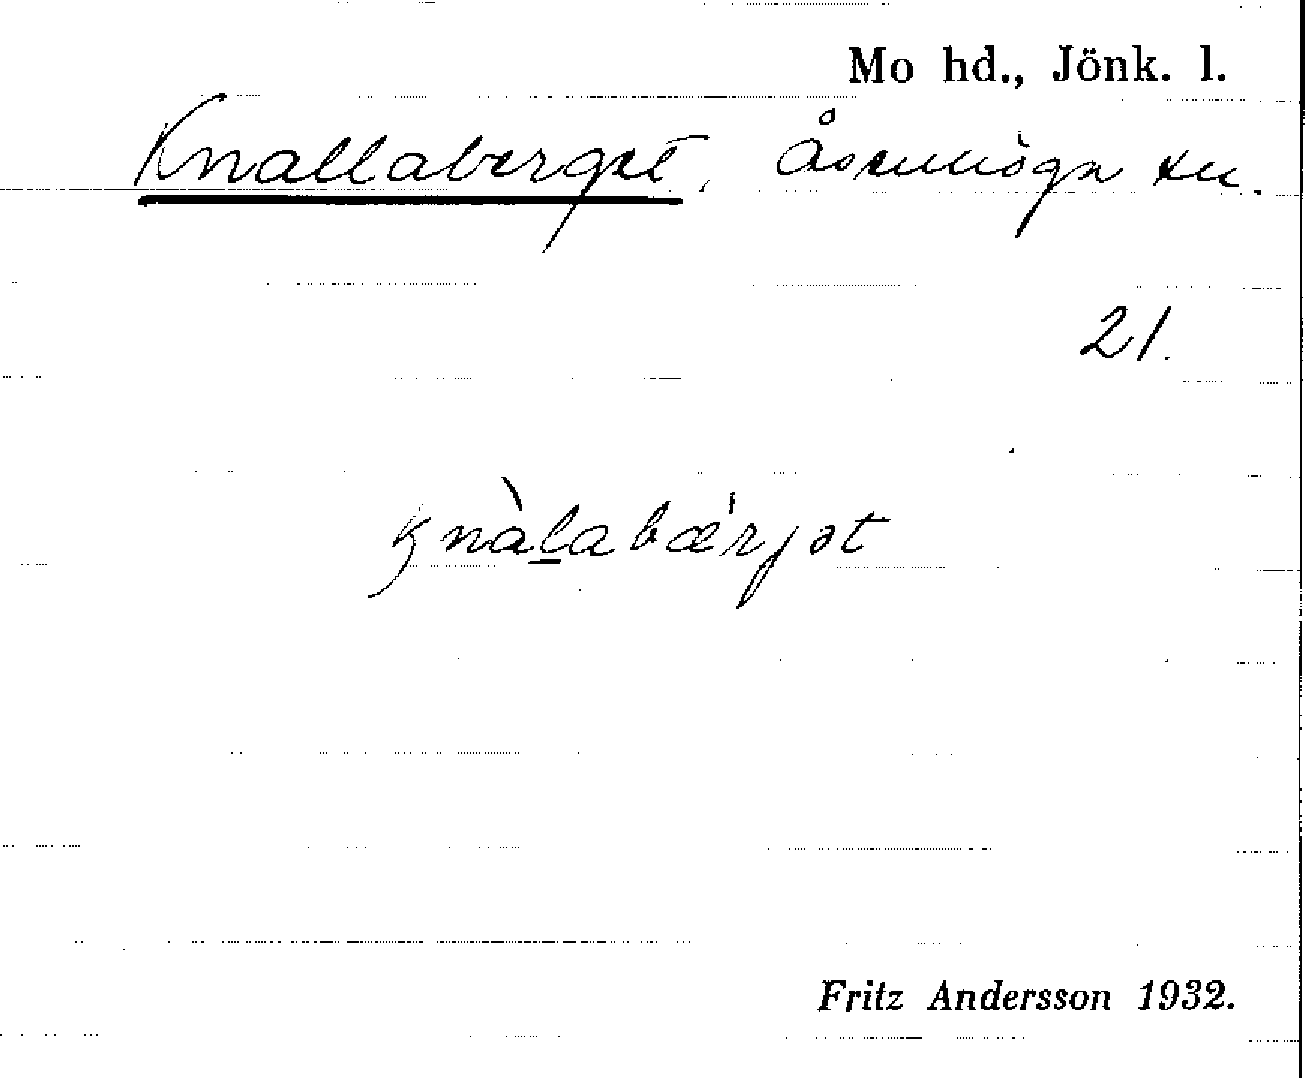 Mo hd., Jönk. l.
Knallaberget, Åsenhöga sn.
21.
knàlabæ'rjət
Fritz Andersson 1932.